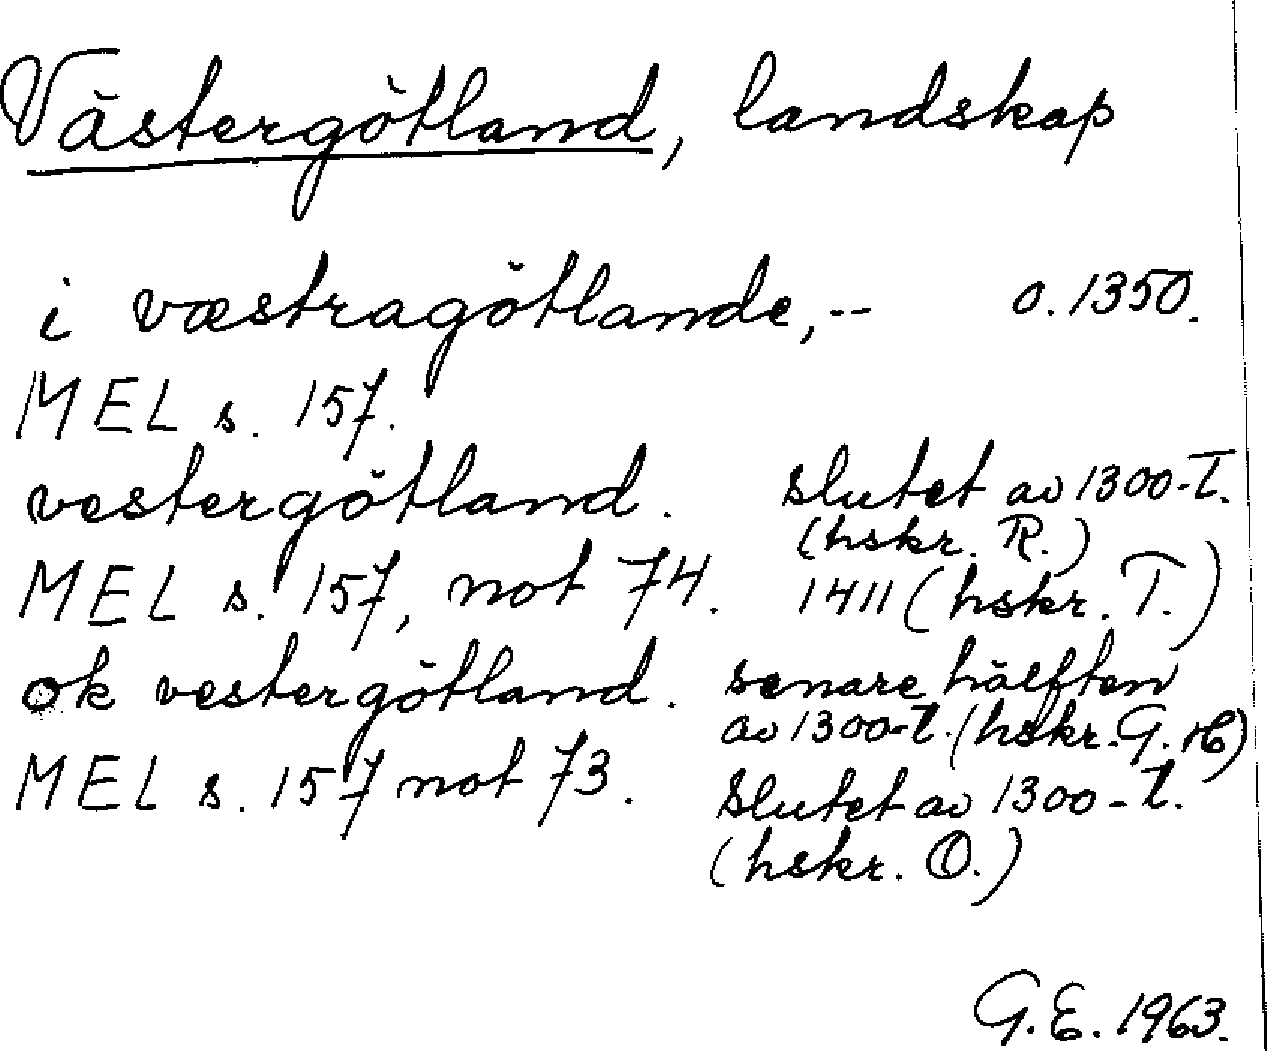 Västergötland, landskap
i væstragötlande,-- o. 1350.
MEL s. 157.
vestergötland. slutet av 1300-t.
(hskr. R.)
MEL s. 157, not 74. 1411 (hskr. T.)
ok vestergötland. senare hälften
av 1300-t. (hskr. G. H)
MEL s. 157 not 73. slutet av 1300-t.
(hskr. O.)
G. E. 1963.